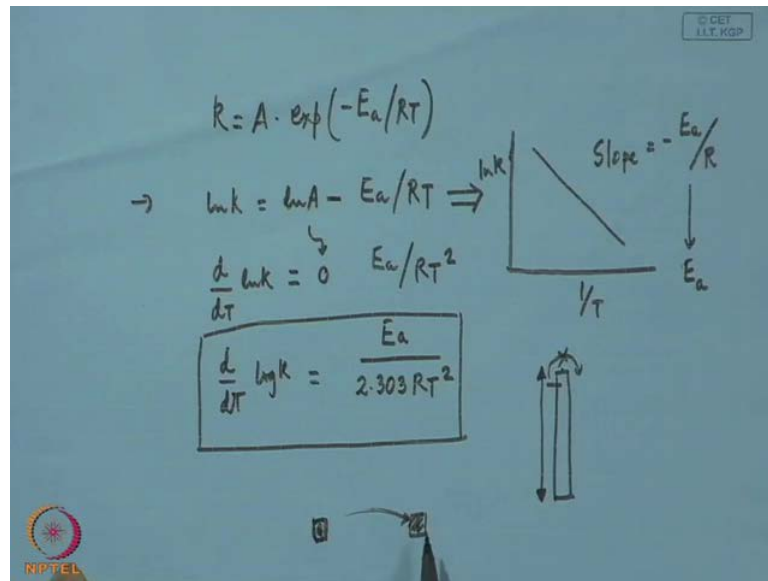 © CET
I.I.T. KGP
k = A · exp(-Ea/RT)
→ lnk = lnA - Ea/RT ⇒
lnk
1/T
Slope = - Ea/R
↓
Ea
d/dT lnk = 0 Ea/RT²
d/dT logk = Ea / 2.303 RT²
NPTEL